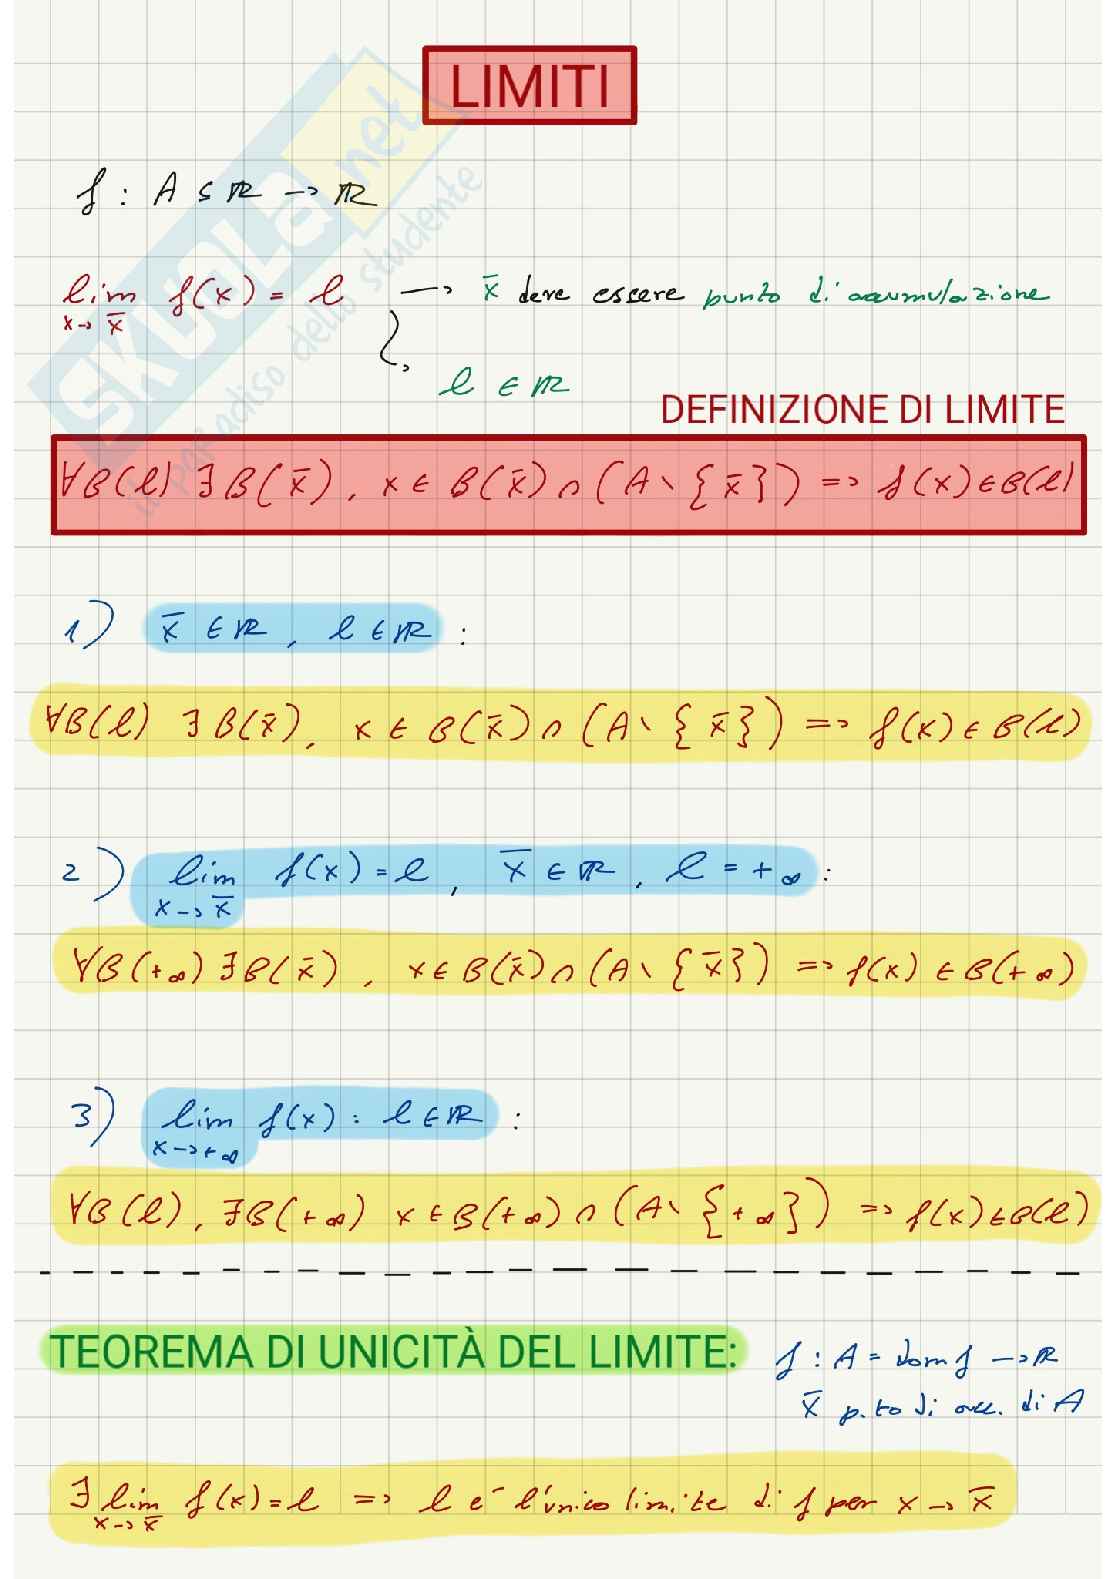 LIMITI
f : A ⊆ ℝ → ℝ
lim f(x) = l → x̄ deve essere punto di accumulazione
x → x̄
l ∈ ℝ
DEFINIZIONE DI LIMITE
∀B(l) ∃B(x̄), x ∈ B(x̄) ∩ (A \ {x̄}) => f(x) ∈ B(l)
1) x̄ ∈ ℝ, l ∈ ℝ :
∀B(l) ∃B(x̄), x ∈ B(x̄) ∩ (A \ {x̄}) => f(x) ∈ B(l)
2) lim f(x) = l, x̄ ∈ ℝ, l = +∞ :
x → x̄
∀B(+∞) ∃B(x̄), x ∈ B(x̄) ∩ (A \ {x̄}) => f(x) ∈ B(+∞)
3) lim f(x) = l ∈ ℝ :
x → +∞
∀B(l), ∃B(+∞) x ∈ B(+∞) ∩ (A \ {+∞}) => f(x) ∈ B(l)
TEOREMA DI UNICITÀ DEL LIMITE: f : A = dom f → ℝ
x̄ p.to di acc. di A
∃ lim f(x) = l => l è l'unico limite di f per x → x̄
x → x̄
SKUOLA.net
il paradiso dello studente